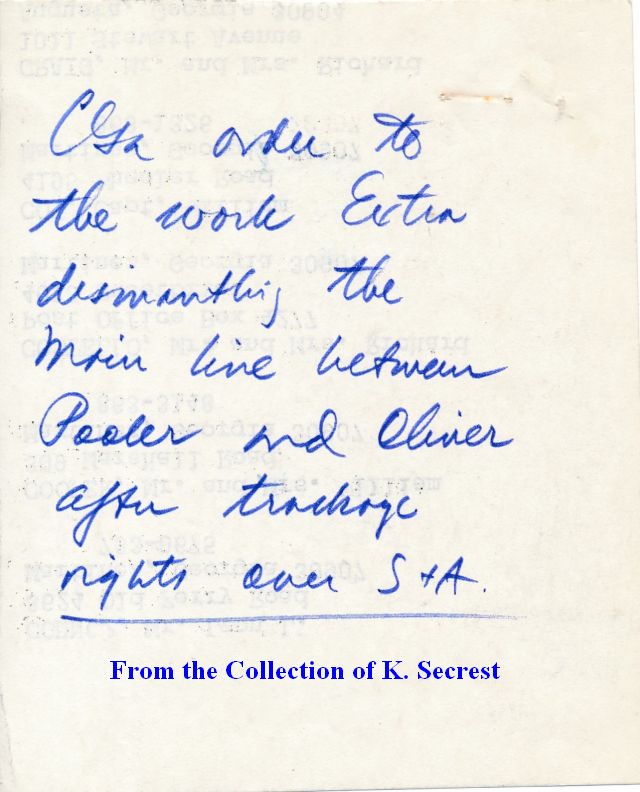 CGa order to
the work Extra
dismantling the
main line between
Pooler and Oliver
after trackage
rights over S+A.
From the Collection of K. Secrest